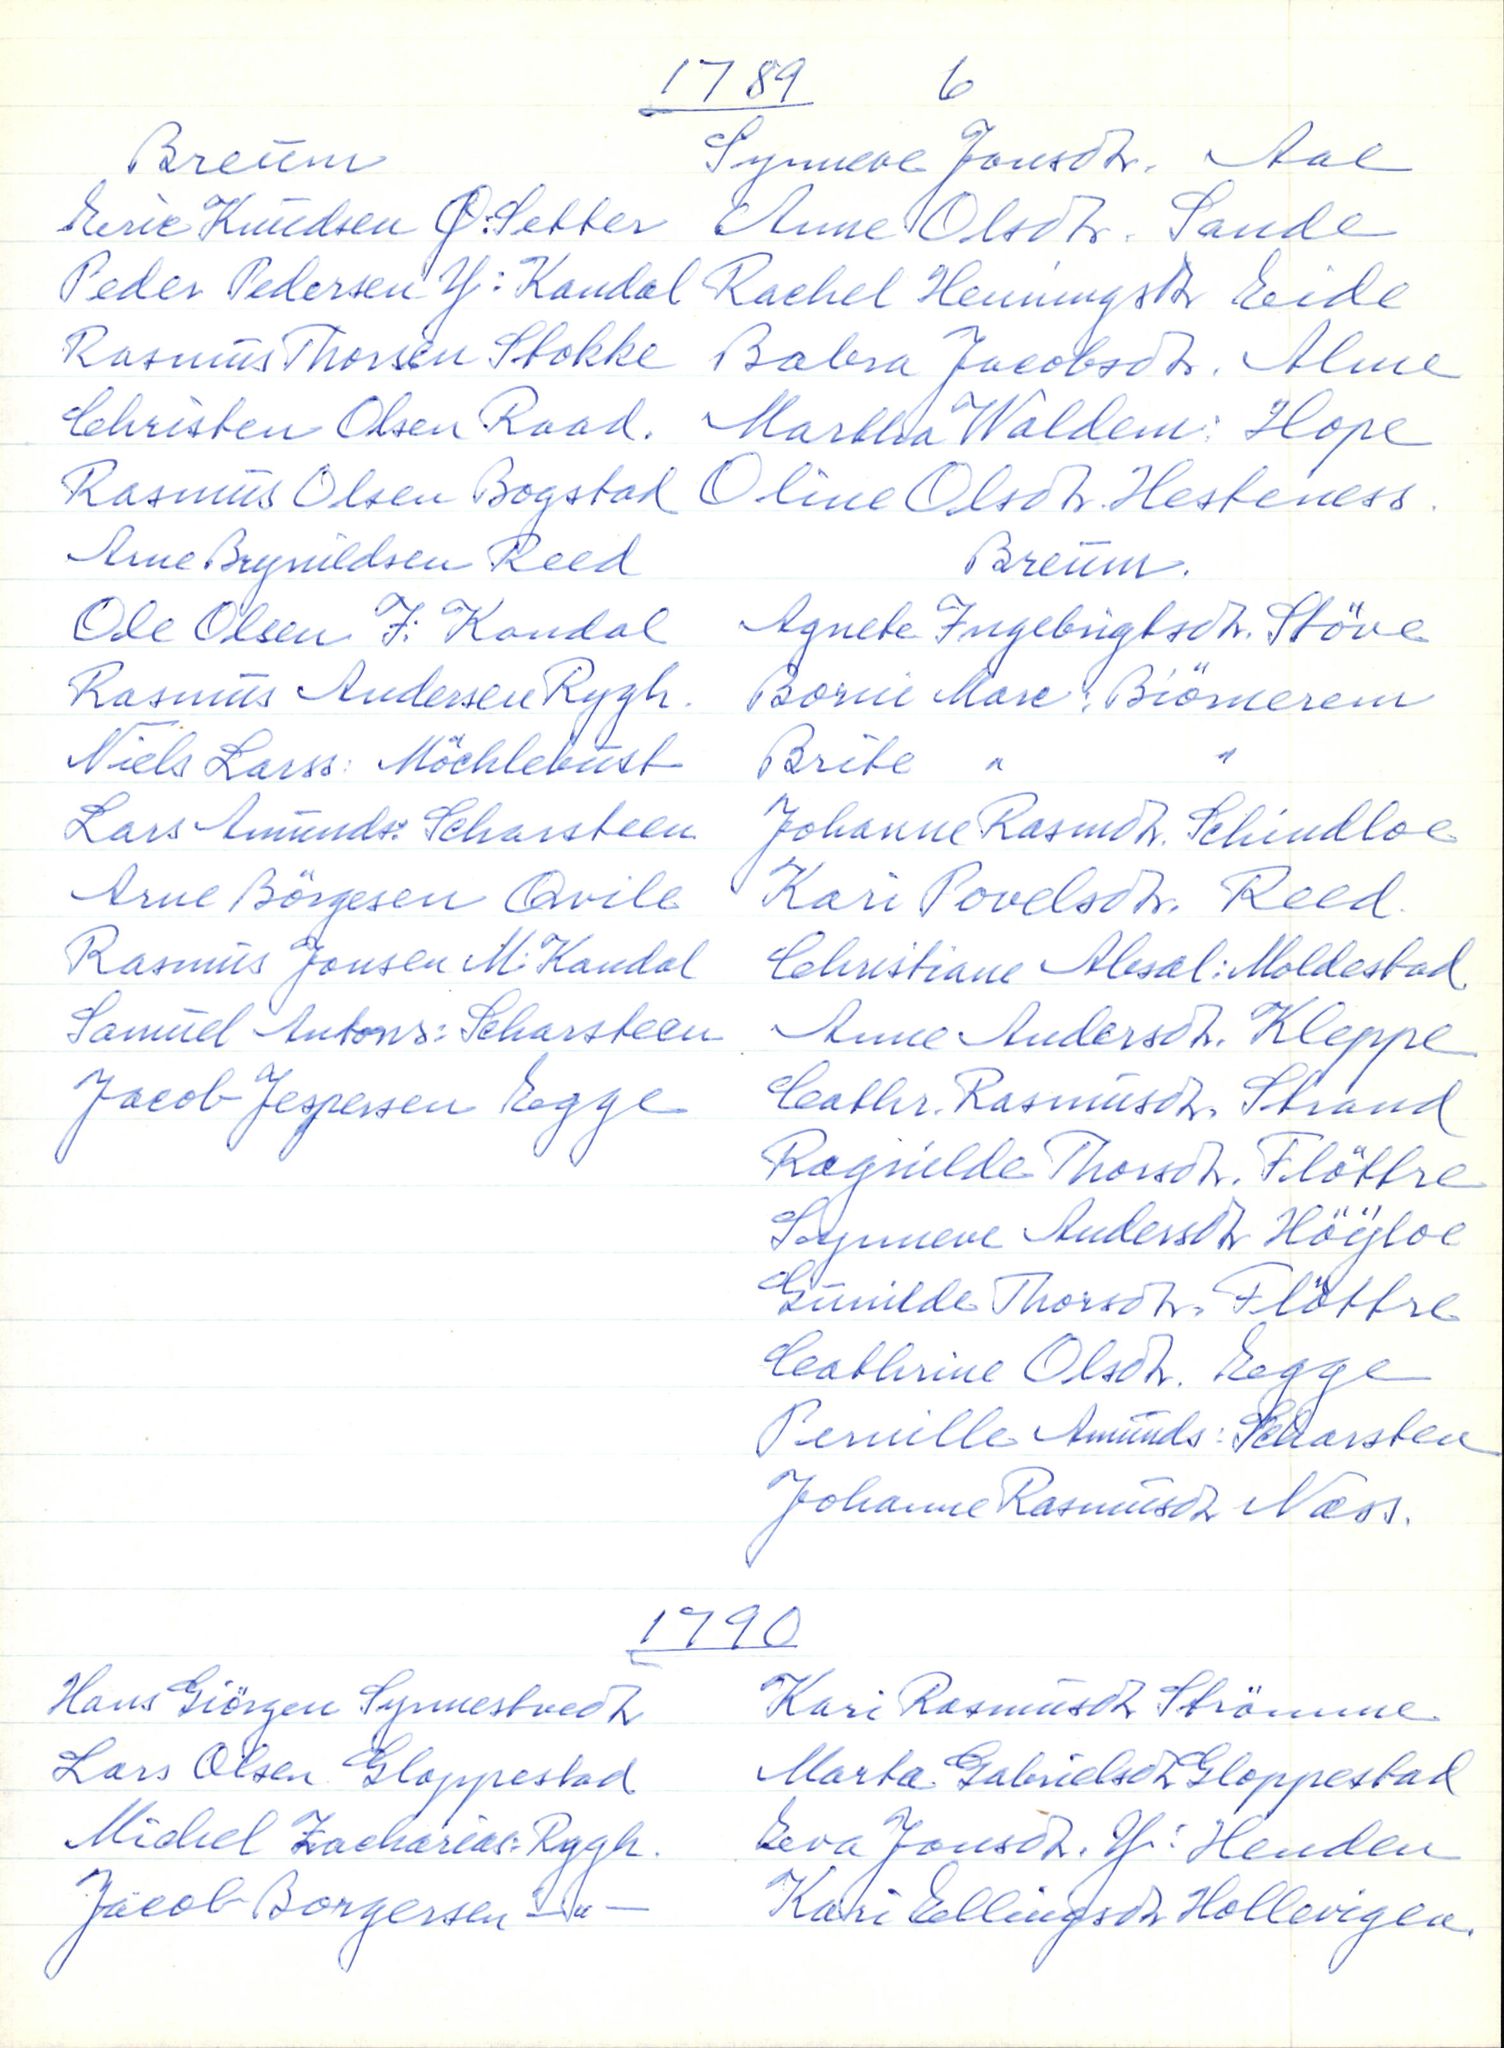 1789 6
Breum
Eric Knudsen Ø: Setter
Peder Pedersen Y: Kandal
Rasmus Thorsen Stokke
Christen Olsen Raad.
Rasmus Olsen Bogstad
Arne Brynildsen Reed
Ole Olsen F: Kandal
Rasmus Andersen Rygh.
Niels Larss: Möchlebust
Lars Amunds: Scharsteen
Arne Börgesen Qvile
Rasmus Jonsen M: Kandal
Samuel Antons: Scharsteen
Jacob Jespersen Egge
Synneve Jonsdtr. Aae
Anne Olsdtr. Sande
Rachel Henningsdtr Eide
Babra Jacobsdtr. Alme
Martha Waldem: Hope
Oline Olsdtr. Hesteness.
Breum.
Agnete Ingebrigtsdtr. Stöve
Borni Marc: Biörnerem
Brite " "
Johanne Rasmdtr. Schindloe
Kari Povelsdtr. Reed.
Christiane Absal: Moldestad
Anne Andersdtr. Kleppe
Cathr. Rasmusdtr. Strand
Ragnilde Thorsdtr. Flöttre
Synneve Andersdtr Höyloe
Gunilde Thorsdtr. Flöttre
Cathrine Olsdtr. Egge
Pernille Amunds: Scharsteen
Johanne Rasmusdtr Næss.
1790
Hans Giörgen Synnestvedt
Lars Olsen Gloppestad
Michel Zacharias: Rygh.
Jacob Borgersen — " —
Kari Rasmusdtr Strömme
Marta Gabrielsdtr Gloppestad
Eva Jonsdtr. Y: Henden
Kari Ellingsdtr Hollevigen.